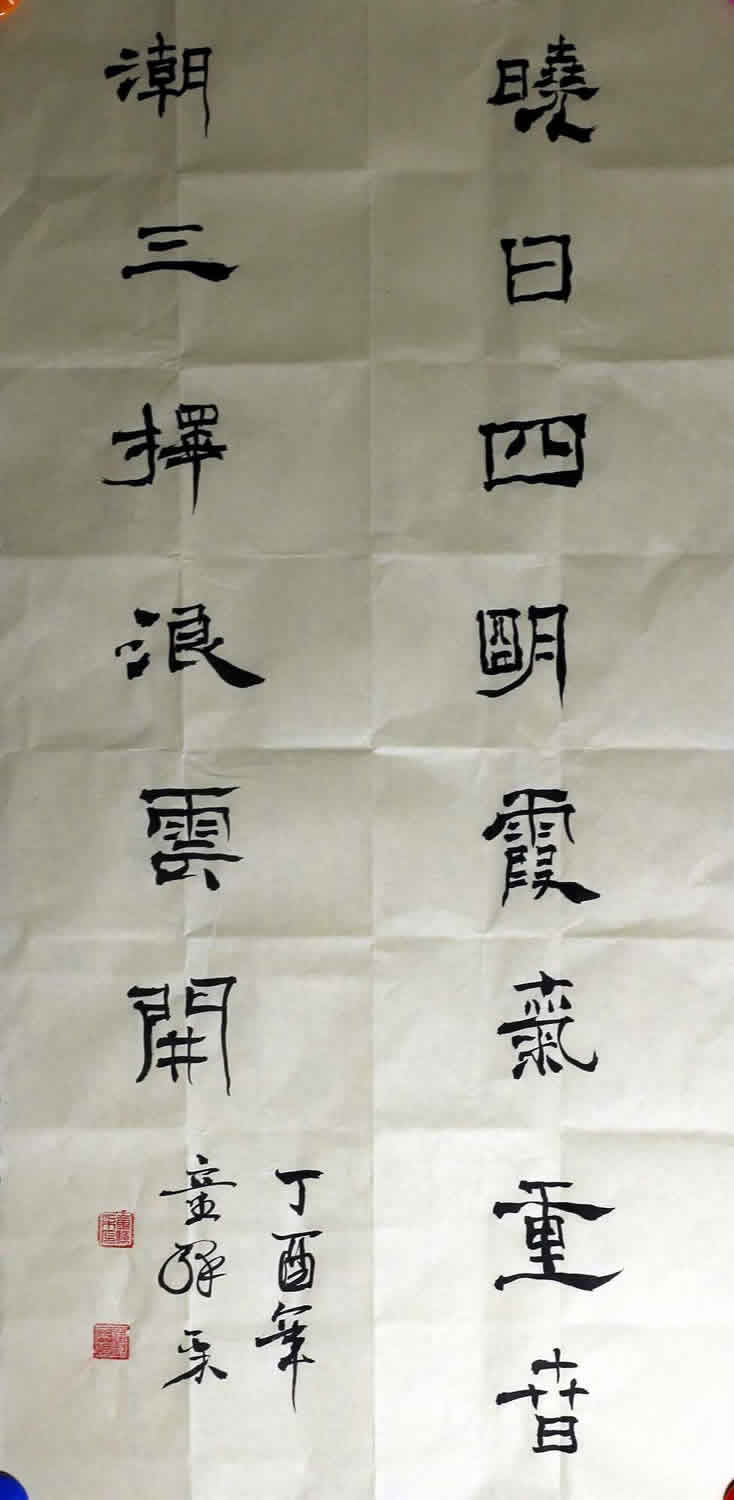 曉日四明霞氣重春
潮三擇浪雲開
丁酉年
童